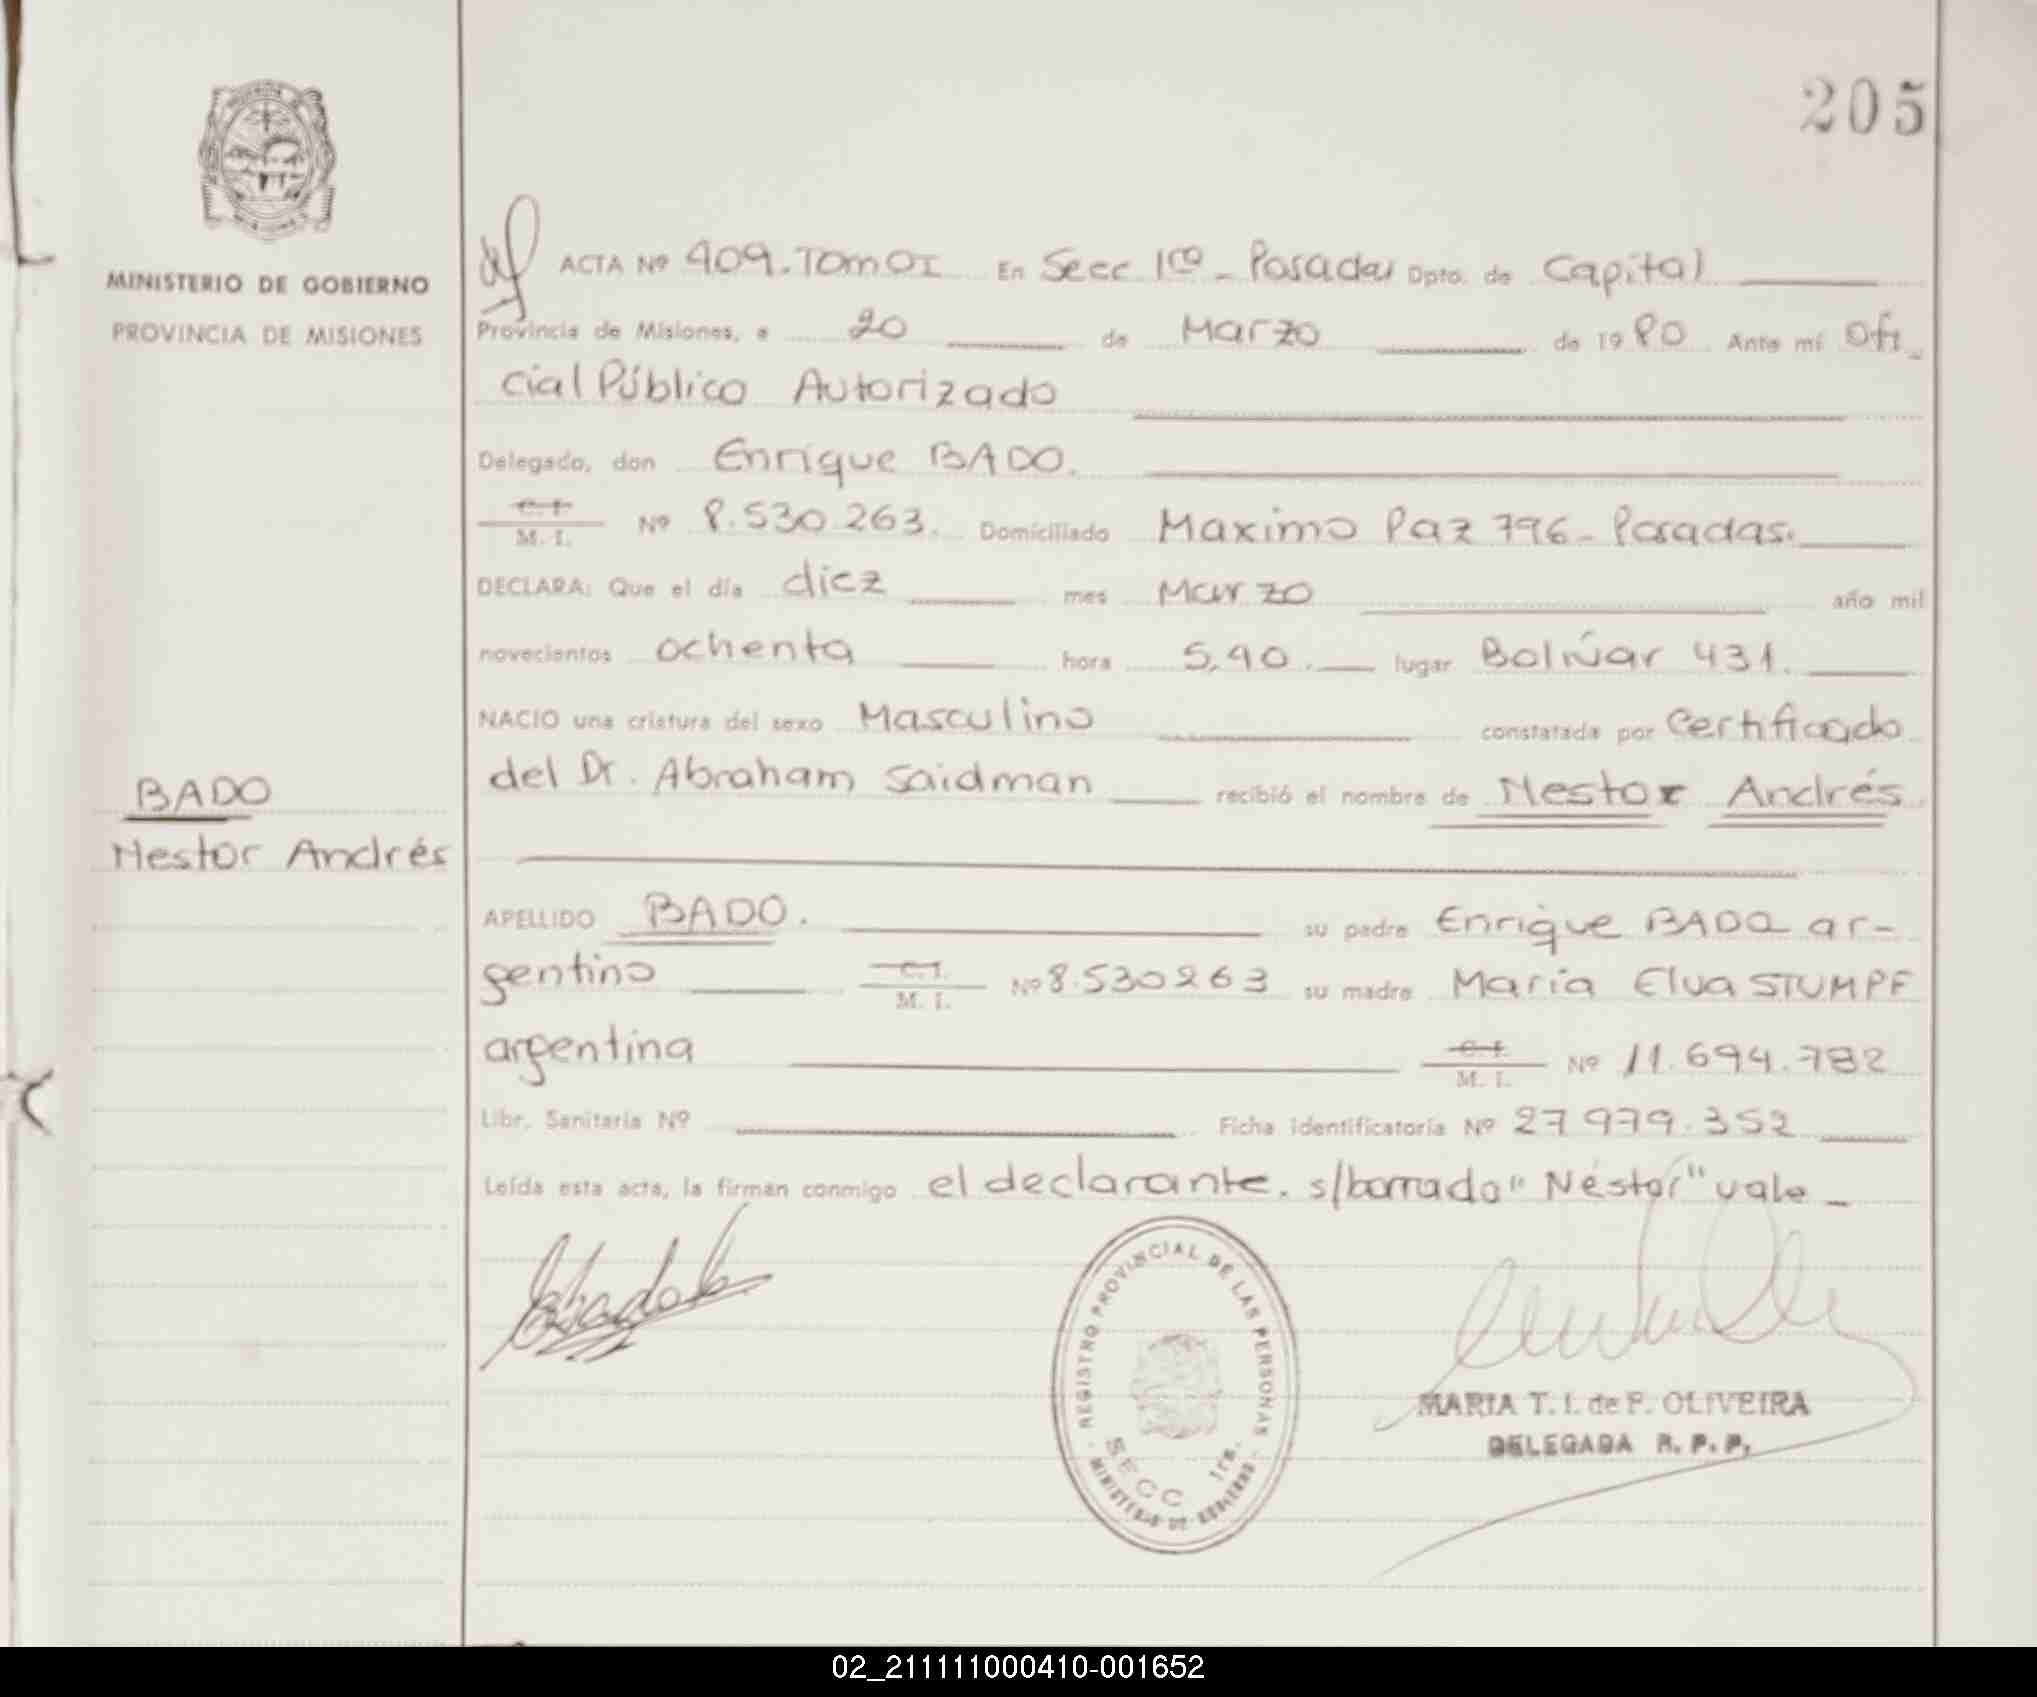 205
MINISTERIO DE GOBIERNO
PROVINCIA DE MISIONES
ACTA Nº 409. TOMO I En Secc 1ra - Posadas Dpto. de Capital
Provincia de Misiones, a 20 de Marzo de 1980 Ante mí Ofi-
cial Público Autorizado
Delegado, don Enrique BADO.
C. I.
M. I. Nº 8.530.263. Domiciliado Maximo Paz 796 - Posadas.
DECLARA: Que el día diez mes Marzo año mil
novecientos ochenta hora 5,40. lugar Bolívar 431.
NACIO una criatura del sexo Masculino constatada por Certificado
del Dr. Abraham Saidman recibió el nombre de Nestor Andrés
BADO
Nestor Andrés
APELLIDO BADO. su padre Enrique BADO ar-
gentino C. I. M. I. Nº 8.530263 su madre María Elva STUMPF
argentina C. I. M. I. Nº 11.694.782
Libr. Sanitaria Nº Ficha identificatoria Nº 27979.352
Leída esta acta, la firman conmigo el declarante. s/borrado "Néstor" vale -
REGISTRO PROVINCIAL DE LAS PERSONAS
SECC 1ra.
MINISTERIO DE GOBIERNO
MARIA T. I. de F. OLIVEIRA
DELEGADA R. P. P.
02_211111000410-001652